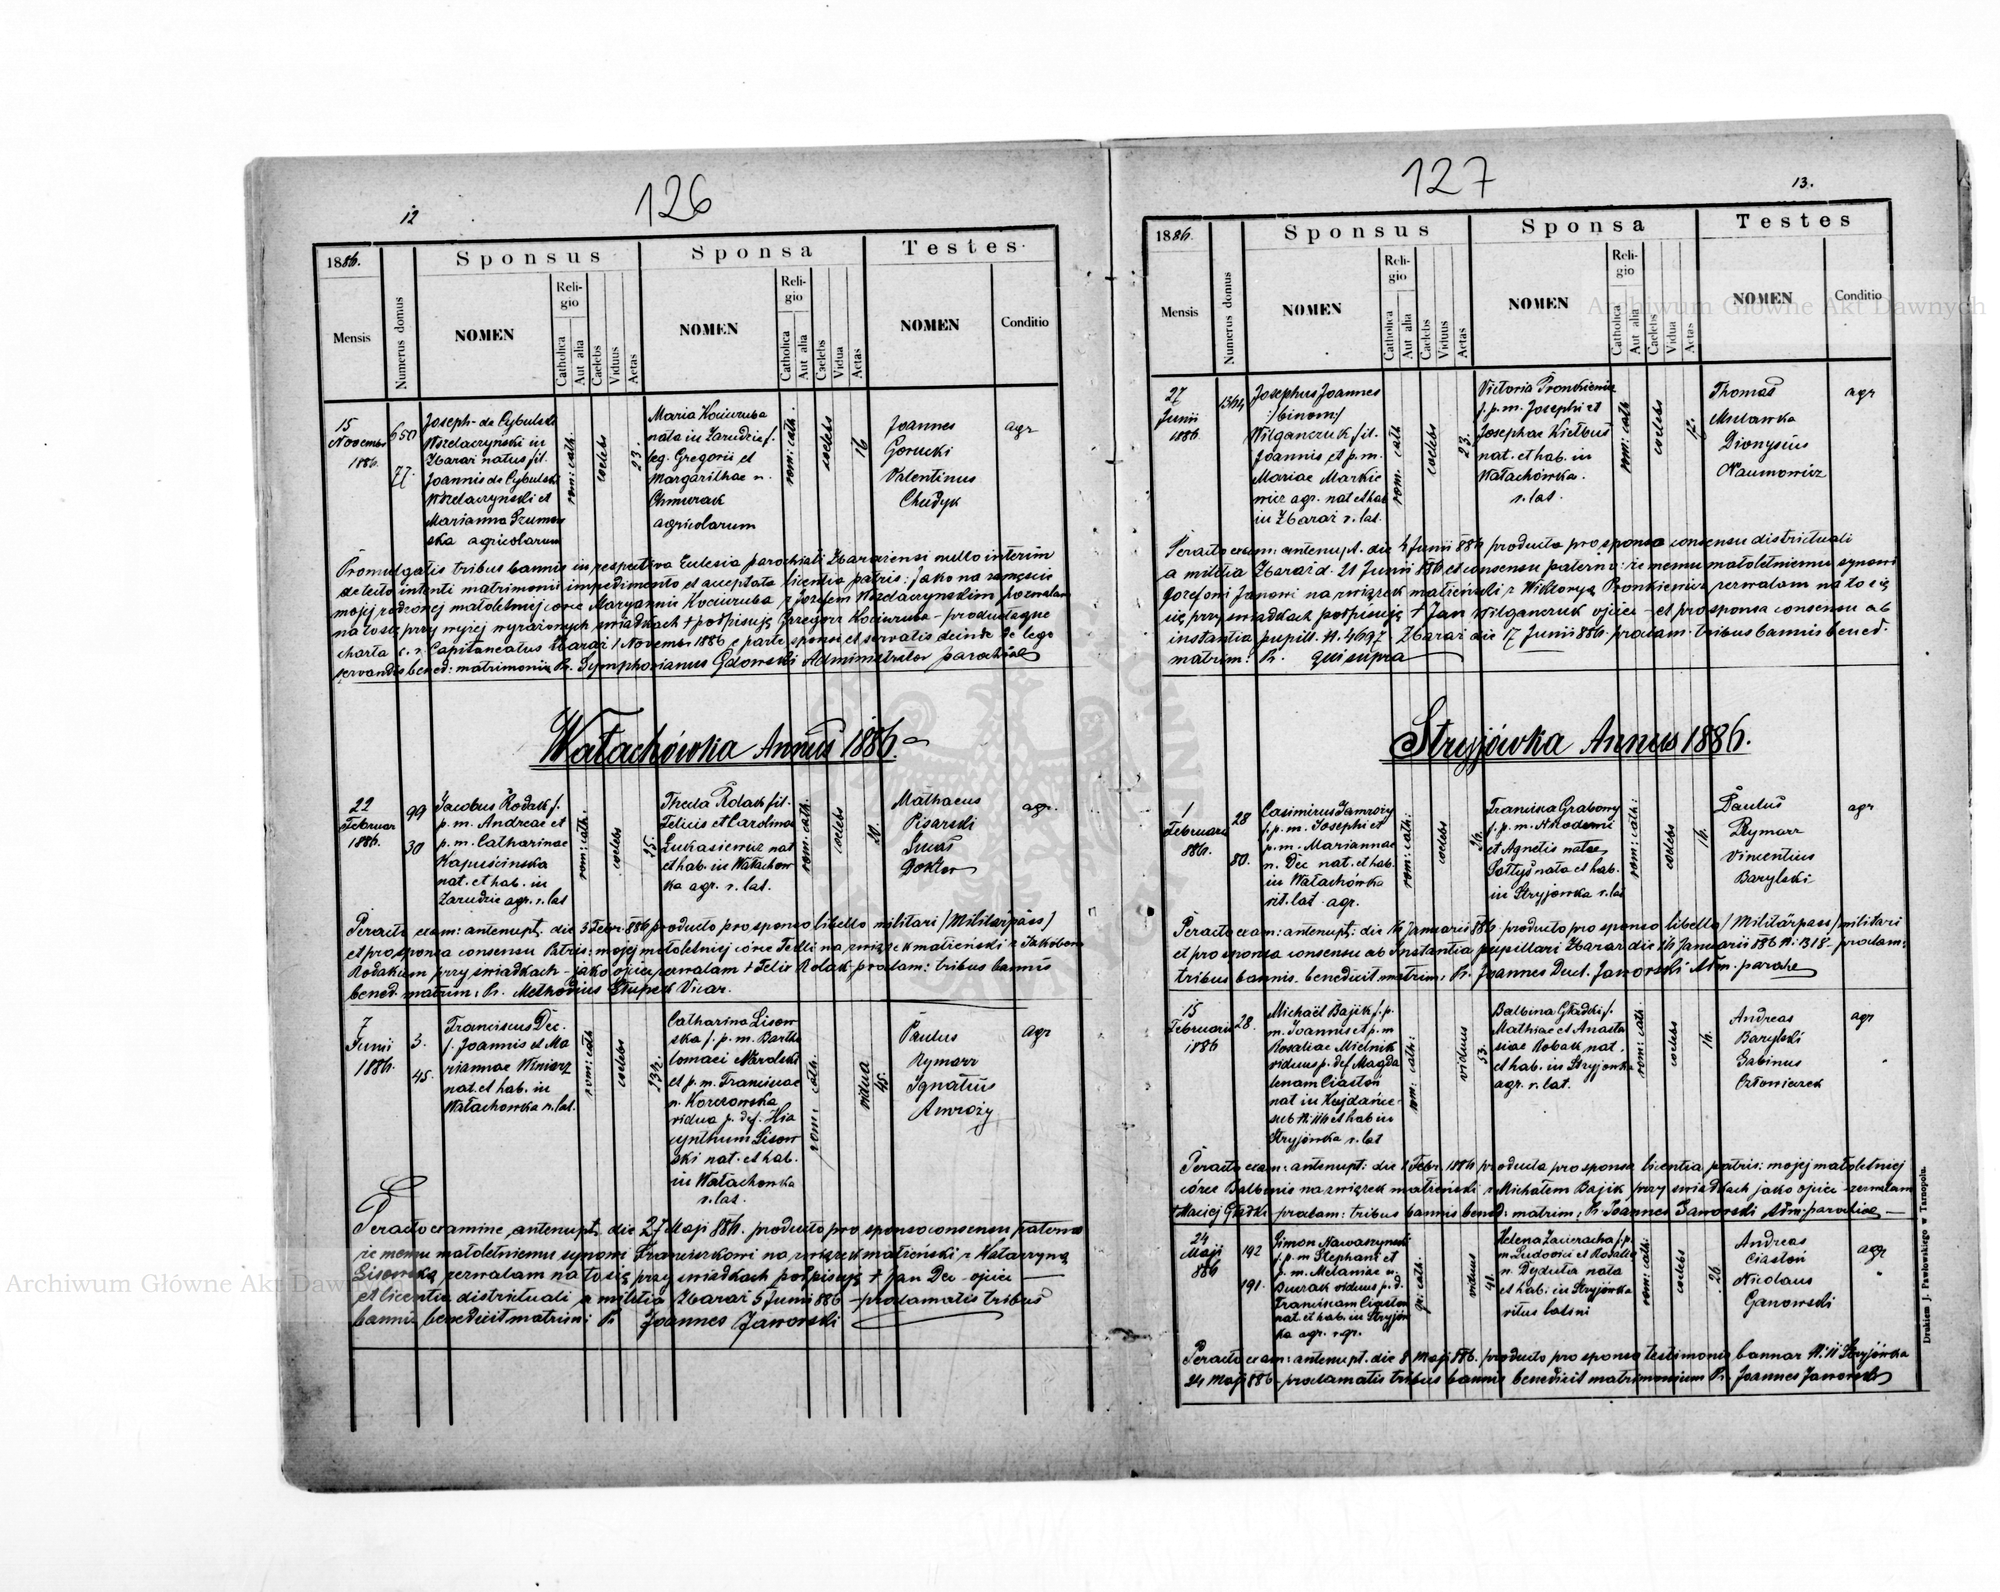 126
12
1886.
Mensis
Numerus domus
Sponsus
NOMEN
Religio
Catholica
Aut alia
Caelebs
Viduus
Aetas
Sponsa
NOMEN
Religio
Catholica
Aut alia
Caelebs
Vidua
Aetas
Testes
NOMEN
Conditio
15
Novembr
1886.
650
77.
Joseph de Cybulski
Wszelaczyński in
Zbaraż natus fil.
Joannis de Cybulski
Wszelaczynski et
Marianna Szumow
ska agricolarum
rom: cath.
coelebs
23.
Maria Kociuruba
nata in Zarudzie f.
leg. Gregorii et
Margarithae n.
Chmurak
agricolarum
rom: cath.
coelebs
16
Joannes
Gorucki
Valentinus
Chudyk
agr
Promulgatis tribus bannis in respectiva Eclesia parochiali Zbaraziensi nullo interim
detecto intenti matrimonii impedimento et acceptata licentia patris: Jako na zamęście
mojej rodzonej małoletniej córce Maryannie Kociuruba z Józefem Wszelaczynskim pozwalam
na to się przy wyżej wyrażonych świadkach + podpisują Grzegorz Kociuruba - producta que
charta c. r. Capitaneatus Zbaraż 1 November 1886 e parte sponsi et servatis deinde de lege
servandis bened: matrimonia Pr. Symphorianus Gdowski Administrator parochiae
Wałachówka Annus 1886.
22
Februar
1886.
99
30
Jacobus Rodak f.
p. m. Andreae et
p. m. Catharinae
Kapuścinska
nat. et hab. in
Zarudzie agr. r. lat
rom: cath.
coelebs
25.
Thecla Rolak fil.
Felicis et Carolinae
Lukasiewicz nat
et hab. in Wałachow
ka agr. r. lat.
rom: cath.
coelebs
20.
Mathaeus
Pisarski
Lucas
Doktor
agr.
Peracto exam: antenupt. die 3 Febr. 886 producto pro sponso libello militari /Militärpass/
et pro sponsa consensu Patris: mojej małoletniej córce Tekli na związek małżeński z Jakobem
Rodakiem przy swiadkach - jako ojciec zezwalam + Felix Rolak - proclam: tribus bannis
bened. matrim: Pr. Methodius Stupek Vicar.
7
Junii
1886.
3.
45.
Franciscus Dec.
f. Joannis et Ma
riannae Winiarz
nat. et hab. in
Wałachowka r. lat.
rom: cath
coelebs
23½
Catharina Lisow
ska f. p. m. Bartho
lomaei Nawolski
et p. m. Franciscae
n. Korczowska
vidua p. def. Hia
cynthum Lisow
ski nat. et hab.
in Wałachowka
r. lat.
rom: cath.
vidua
45.
Paulus
Rymarz
Ignatius
Amroży
agr
Peracto examine antenupt. die 27 Maji 886. producto pro sponso consensu paterno
że memu małoletniemu synowi Franciszkowi na związek małżeński z Katarzyną
Lisowską zezwalam na to się przy swiadkach podpisują + Jan Dec ojciec
et licentia districtuali a militia Zbaraż 5 Junii 886 - proclamatis tribus
bannis benedicit matrim: Pr. Joannes Jaworski
127
13.
1886.
Mensis
Numerus domus
Sponsus
NOMEN
Religio
Catholica
Aut alia
Caelebs
Viduus
Aetas
Sponsa
NOMEN
Religio
Catholica
Aut alia
Caelebs
Vidua
Aetas
Testes
NOMEN
Conditio
27
Junii
1886.
Josephus Joannes
/:binom:/
Wilganczuk fil.
Joannis et p. m.
Mariae Markie
wicz agr. nat et hab
in Zbaraż r. lat.
rom: cath
coelebs
23.
Victoria Pronkiewicz
f. p. m. Josephi et
Josephae Kiełbus
nat. et hab. in
Wałachówka.
r. lat.
rom: cath
coelebs
Thomas
Mulawka
Dionysius
Naumowicz
agr
Peracto exam: antenupt. die 4 Junii 886 producto pro sponso consensu districtuali
a militia Zbaraż d. 21 Junii 886 et consensu paterno: że memu małoletniemu synowi
Józefowi Janowi na związek małżeński z Wiktoryą Pronkiewicz zezwalam na to się
się przy swiadkach podpisują + Jan Wilganczuk ojciec - et pro sponsa consensu ab
instantia pupill. N. 4697. Zbaraż die 17 Junii 886. proclam. tribus bannis bened.
matrim: Pr. qui supra
Stryjówka Annus 1886.
1
Februarii
886.
28
80.
Casimirus Jamroży
f. p. m. Josephi et
p. m. Mariannae
n. Dec nat. et hab.
in Wałachówka
rit. lat. agr.
rom: cath:
coelebs
24.
Francisca Grabowy
f. p. m. Nicodemi
et Agnetis natae
Sołtys nata et hab.
in Stryjowka r. lat
rom: cath:
coelebs
Paulus
Rymarz
Vincentius
Barylski
agr
Peracto exam: antenupt: die 16 Januarii 886. producto pro sponso libello /Militärpass/ militari
et pro sponsa consensu ab Instantia pupillari Zbaraż die 26 Januarii 886 N: 1318 - proclam:
tribus bannis. benedicit matrim: Pr. Joannes Duct. Jaworski Adm. parohe
15
Februarii
1886
28.
Michaël Bajik f. p.
m. Joannis et p. m
Rosaliae Mielnik
viduus p. def Magda
lenam Ciastoń
nat in Kujdańce
sub N. 114 et hab in
Stryjówka r. lat
rom: cath:
viduus
53.
Balbina Gładki f.
Mathiae et Anasta
siae Robak nat.
et hab. in Stryjowka
agr. r. lat.
rom: cath.
coelebs
Andreas
Barylski
Sabinus
Człowiczek
agr
Peracto exam: antenupt: die 1 Febr. 1886 producta pro sponsa licentia patris: mojej małoletniej
córce Balbinie na związek małżeński z Michałem Bajik przy swiadkach jako ojciec zezwalam
+ Maciej Gładki - proclam: tribus bannis bened: matrim: Pr. Joannes Jaworski Adm: parochiae
24
Maji
886
192
191.
Simon Nawaszynski
f. p. m Stephani et
p. m. Melaniae n.
Dwerak viduus p. d.
Franciscam Ciaston
nat et hab. in Stryjow
ka agr. r. gr.
gr: cath.
viduus
41.
Helena Zacieracha f. p.
m. Ludovici et Rosalia
n. Dydutia nata
et hab: in Stryjówka
ritus latini
rom: cath:
coelebs
26.
Andreas
Ciastoń
Nicolaus
Ganowski
agr
Peracto exam: antenupt. die 8 Maji 886. producto pro sponso testimonio bannor N. 11 Stryjówka
24 Maji 886 - proclamatis tribus bannis benedicit matrimonium Pr. Joannes Jaworski
Drukiem J. Pawłowskiego w Tarnopolu.
Archiwum Główne Akt Dawnych
Archiwum Główne Akt Dawnych